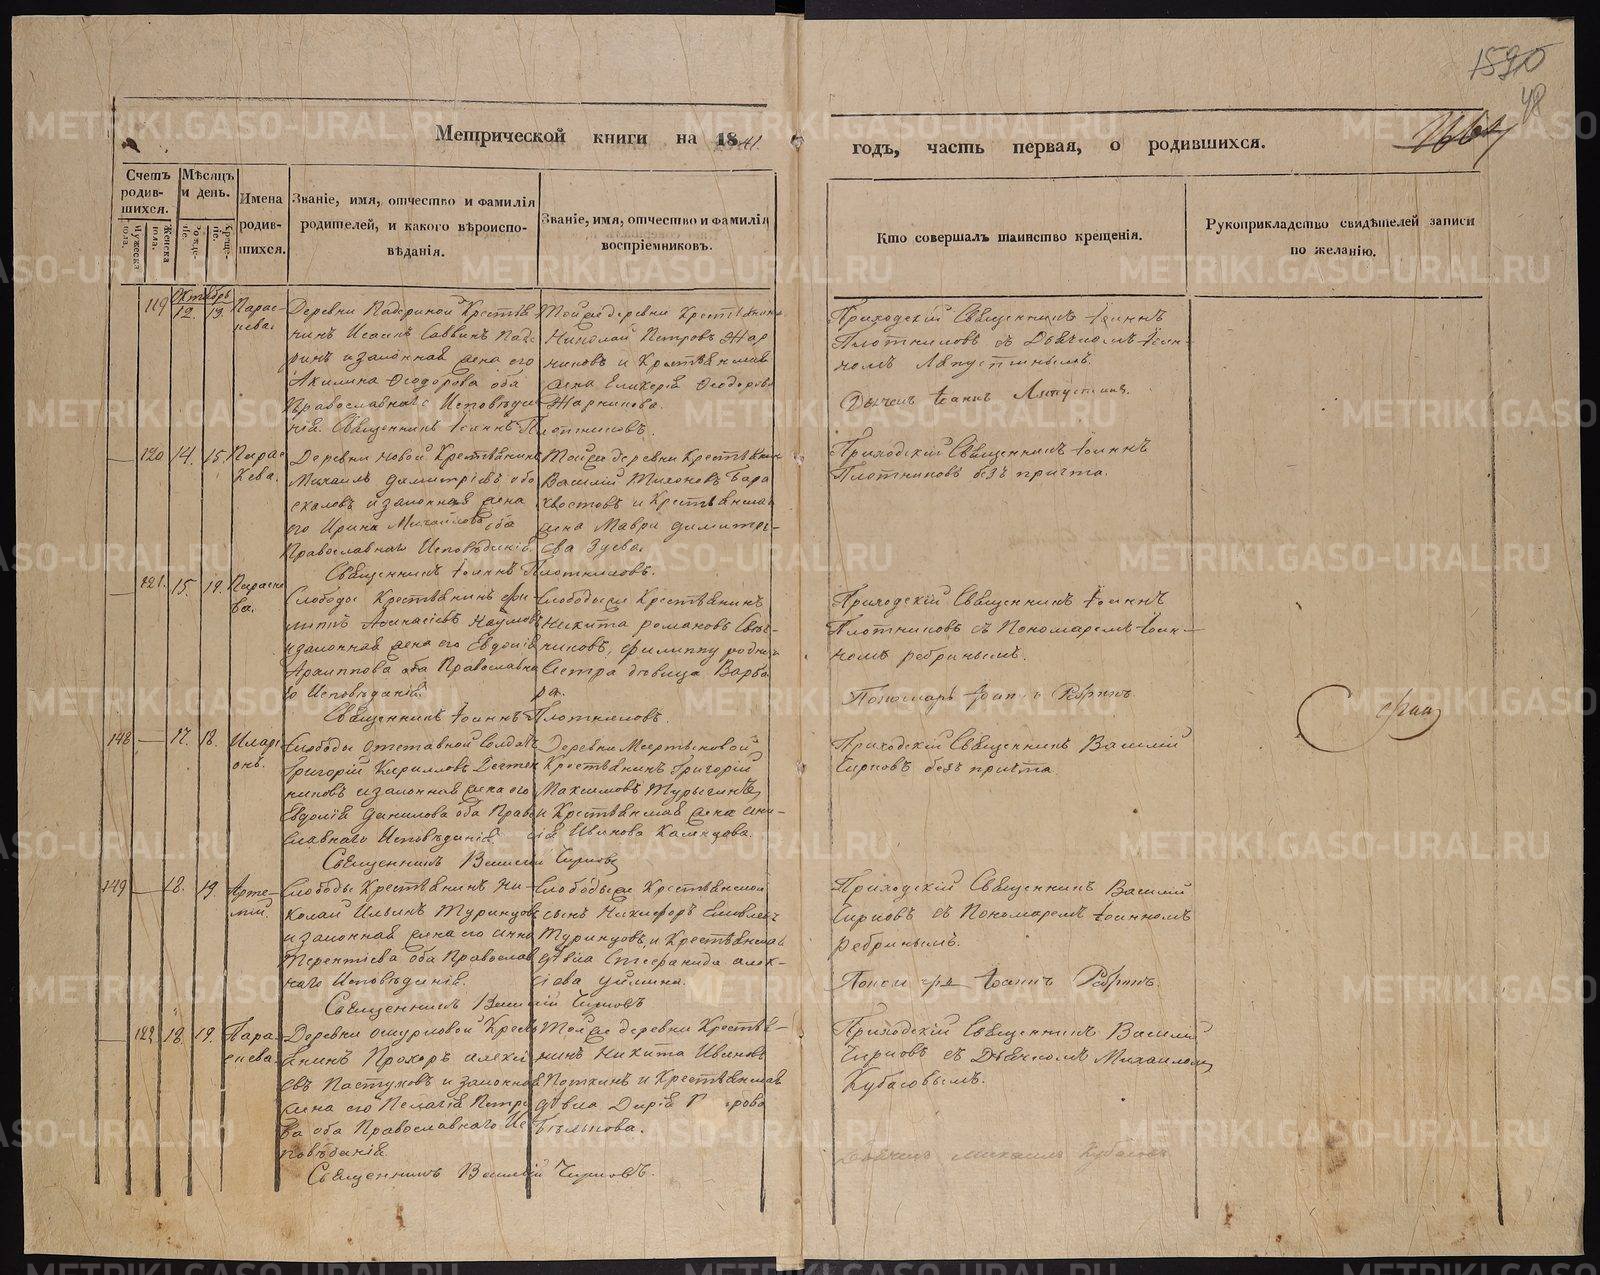 1590
48
Метрической книги на 1841.
годъ, часть первая, о родившихся.
Счетъ родив-
шихся.
Мужеска пола.
Женска пола.
Мѣсяцъ и день.
Рожде-
нiе.
Креще-
нiе.
Имена
родив-
шихся.
Званiе, имя, отчество и фамилiя
родителей, и какого вѣроиспо-
вѣданiя.
Званiе, имя, отчество и фамилiя
воспрiемниковъ.
Кто совершалъ таинство крещенiя.
Рукоприкладство свидѣтелей записи
по желанiю.
Октябрь
119 12. 13. Парас-
кева.
Деревни Падериной Крестья
нинъ Исаакъ Саввинъ Паде
ринъ и законная жена его
Акилина Ѳеодорова оба
Православнаго Исповѣда
нiя. Священникъ Iоаннъ Плотниковъ.
Тойже деревни Крестьянинъ
Николай Петровъ Жар
никовъ и Крестьянская
жена Гликерiя Ѳеодорова
Жарникова.
Приходскiй Священникъ Iоаннъ
Плотниковъ съ Дьячкомъ Iоан-
номъ Ляпустинымъ.
Дьячекъ Iоаннъ Ляпустинъ.
120 14. 15. Парас
кева.
Деревни Новой Крестьянинъ
Михаилъ Димитрiевъ
и законная жена
его Ирина Михайлова оба
Православнаго Исповѣданiя.
Священникъ Iоаннъ Плотниковъ.
Тойже деревни Крестьянинъ
Василiй Тихоновъ Бара
хвостовъ и Крестьянская
жена Мавра Димитрi-
ева Зуева.
Приходскiй Священникъ Iоаннъ
Плотниковъ безъ причта.
121. 15. 19. Параске
ва.
Слободы Крестьянинъ Фи-
липпъ Аѳанасiевъ Наумовъ
и законная жена его Евдокiя
Архиппова оба Православна
го Исповѣданiя.
Священникъ Iоаннъ Плотниковъ.
Слободы же Крестьянинъ
Никита Романовъ
Филиппу родная
Сестра дѣвица Варва
ра.
Приходскiй Священникъ Iоаннъ
Плотниковъ съ Пономаремъ Iоан-
номъ Ребринымъ.
Пономарь Iоаннъ Ребринъ.
148 17. 18. Илари
онъ.
Слободы отставной солдатъ
Григорiй Кирилловъ
и законная жена его
Евдокiя Данилова оба Право
славнаго Исповѣданiя.
Священникъ Василiй Чирковъ
Деревни Мартыновой
Крестьянинъ Григорiй
Максимовъ Турыгинъ
и Крестьянская жена Ани-
сiя Иванова Казанцова.
Приходскiй Священникъ Василiй
Чирковъ безъ причта.
149 18. 19. Арте-
мiй.
Слободы Крестьянинъ Ни-
колай Ильинъ Туринцовъ
и законная жена его Анна
Терентiева оба Православ
наго Исповѣданiя.
Священникъ Василiй Чирковъ
Слободы же Крестьянской
сынъ Никифоръ Яковлевъ
Туринцовъ, и Крестьянская
дѣвка Стефанида Алек-
сiева
Приходскiй Священникъ Василiй
Чирковъ съ Пономаремъ Iоанномъ
Ребринымъ.
Iоаннъ Ребринъ.
122 18. 19. Пара-
скева.
Деревни Ошурковой Кресть
янинъ Прохоръ Алексi
евъ Пастуховъ и законная
жена его Пелагiя Петро
ва оба Православнаго Ис
повѣданiя.
Священникъ Василiй Чирковъ.
Тойже деревни Крестья-
нинъ Никита Ивановъ
и Крестьянская
дѣвка Дарiя
Бѣлькова.
Приходскiй Священникъ Василiй
Чирковъ съ Дьячкомъ Михаиломъ
Кубасовымъ.
Дьячекъ Михаилъ Кубасовъ
METRIKI.GASO-URAL.RU